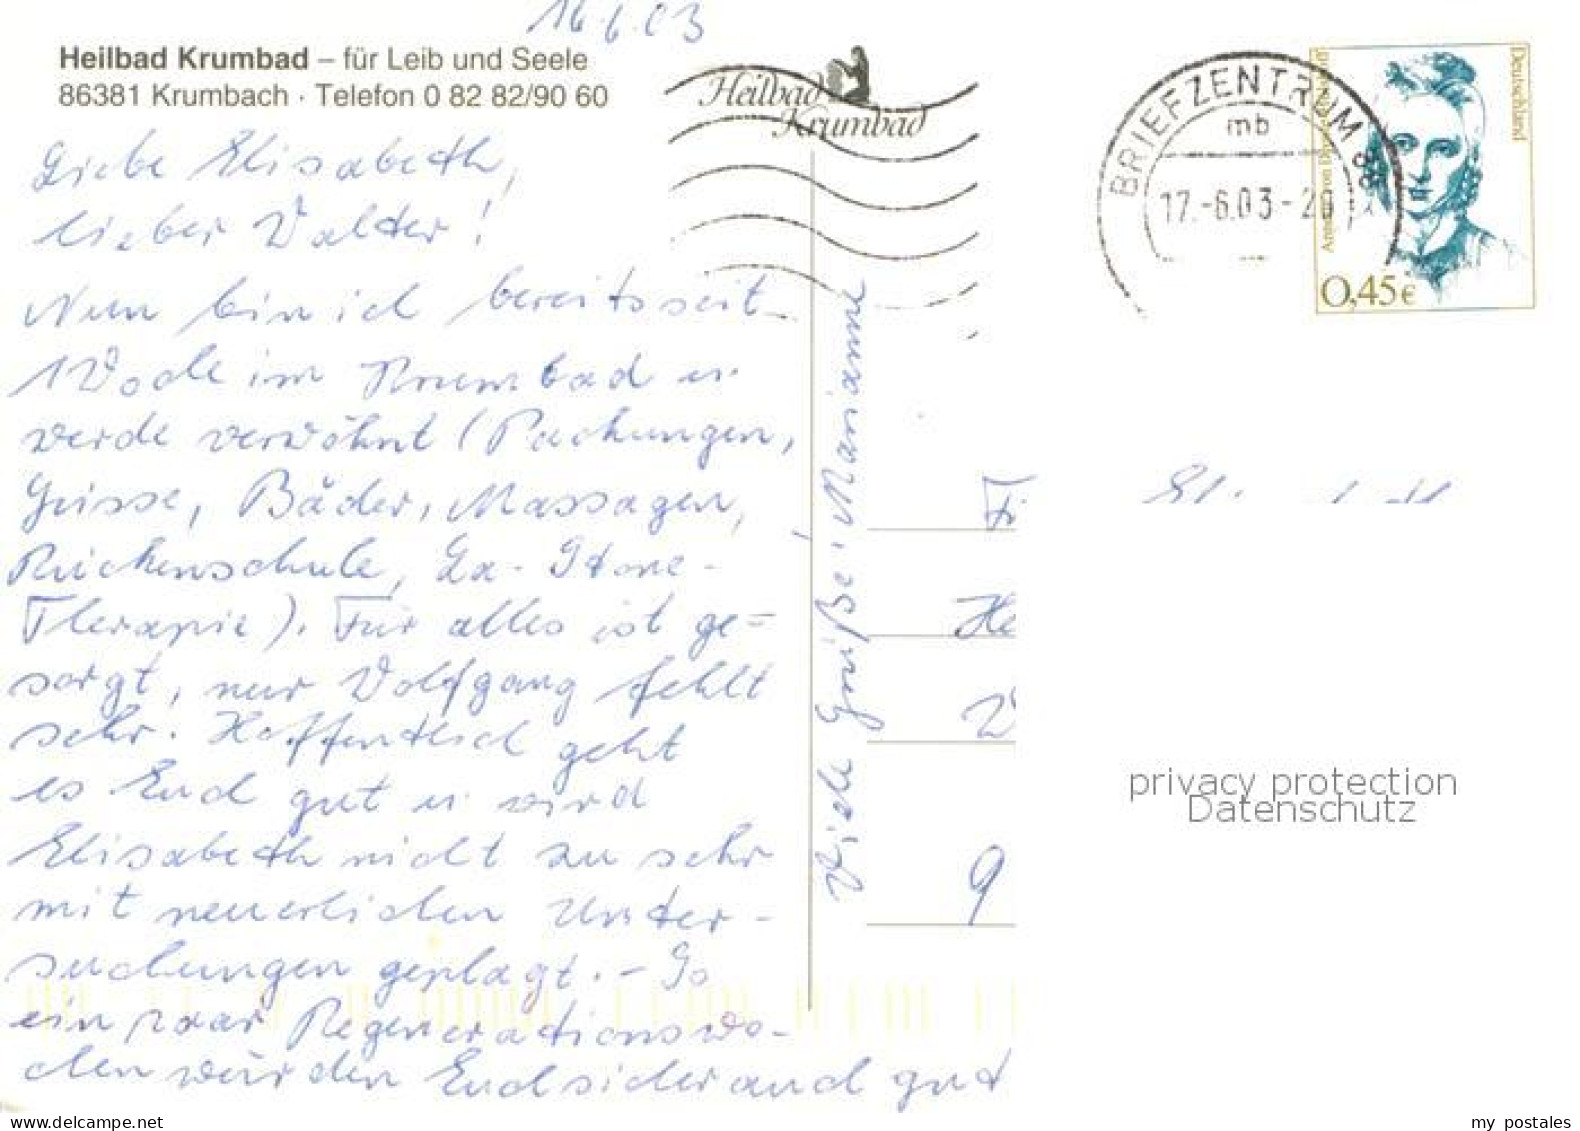 16.6.03
Heilbad Krumbad – für Leib und Seele
86381 Krumbach · Telefon 0 82 82/90 60
Liebe Elisabeth,
lieber Walter!
Nun bin ich bereits seit
1 Woche im Krumbad u.
werde verwöhnt (Packungen,
Güsse, Bäder, Massagen,
Rückenschule, La-Stone-
Therapie). Für alles ist ge=
sorgt, nur Wolfgang fehlt
sehr. Hoffentlich geht
es Euch gut u. wird
Elisabeth nicht zu sehr
mit neuerlichen Unter-
suchungen geplagt. – So
ein paar Regenerationswo-
chen würden Euch sicher auch gut
Viele Grüße! Marianne
Heilbad
Krumbad
BRIEFZENTRUM 86
mb
17.-6.03-20
Deutschland
Annette von Droste-Hülshoff
0,45€
Fr
He
W
9
privacy protection
Datenschutz
www.delcampe.net
my postales